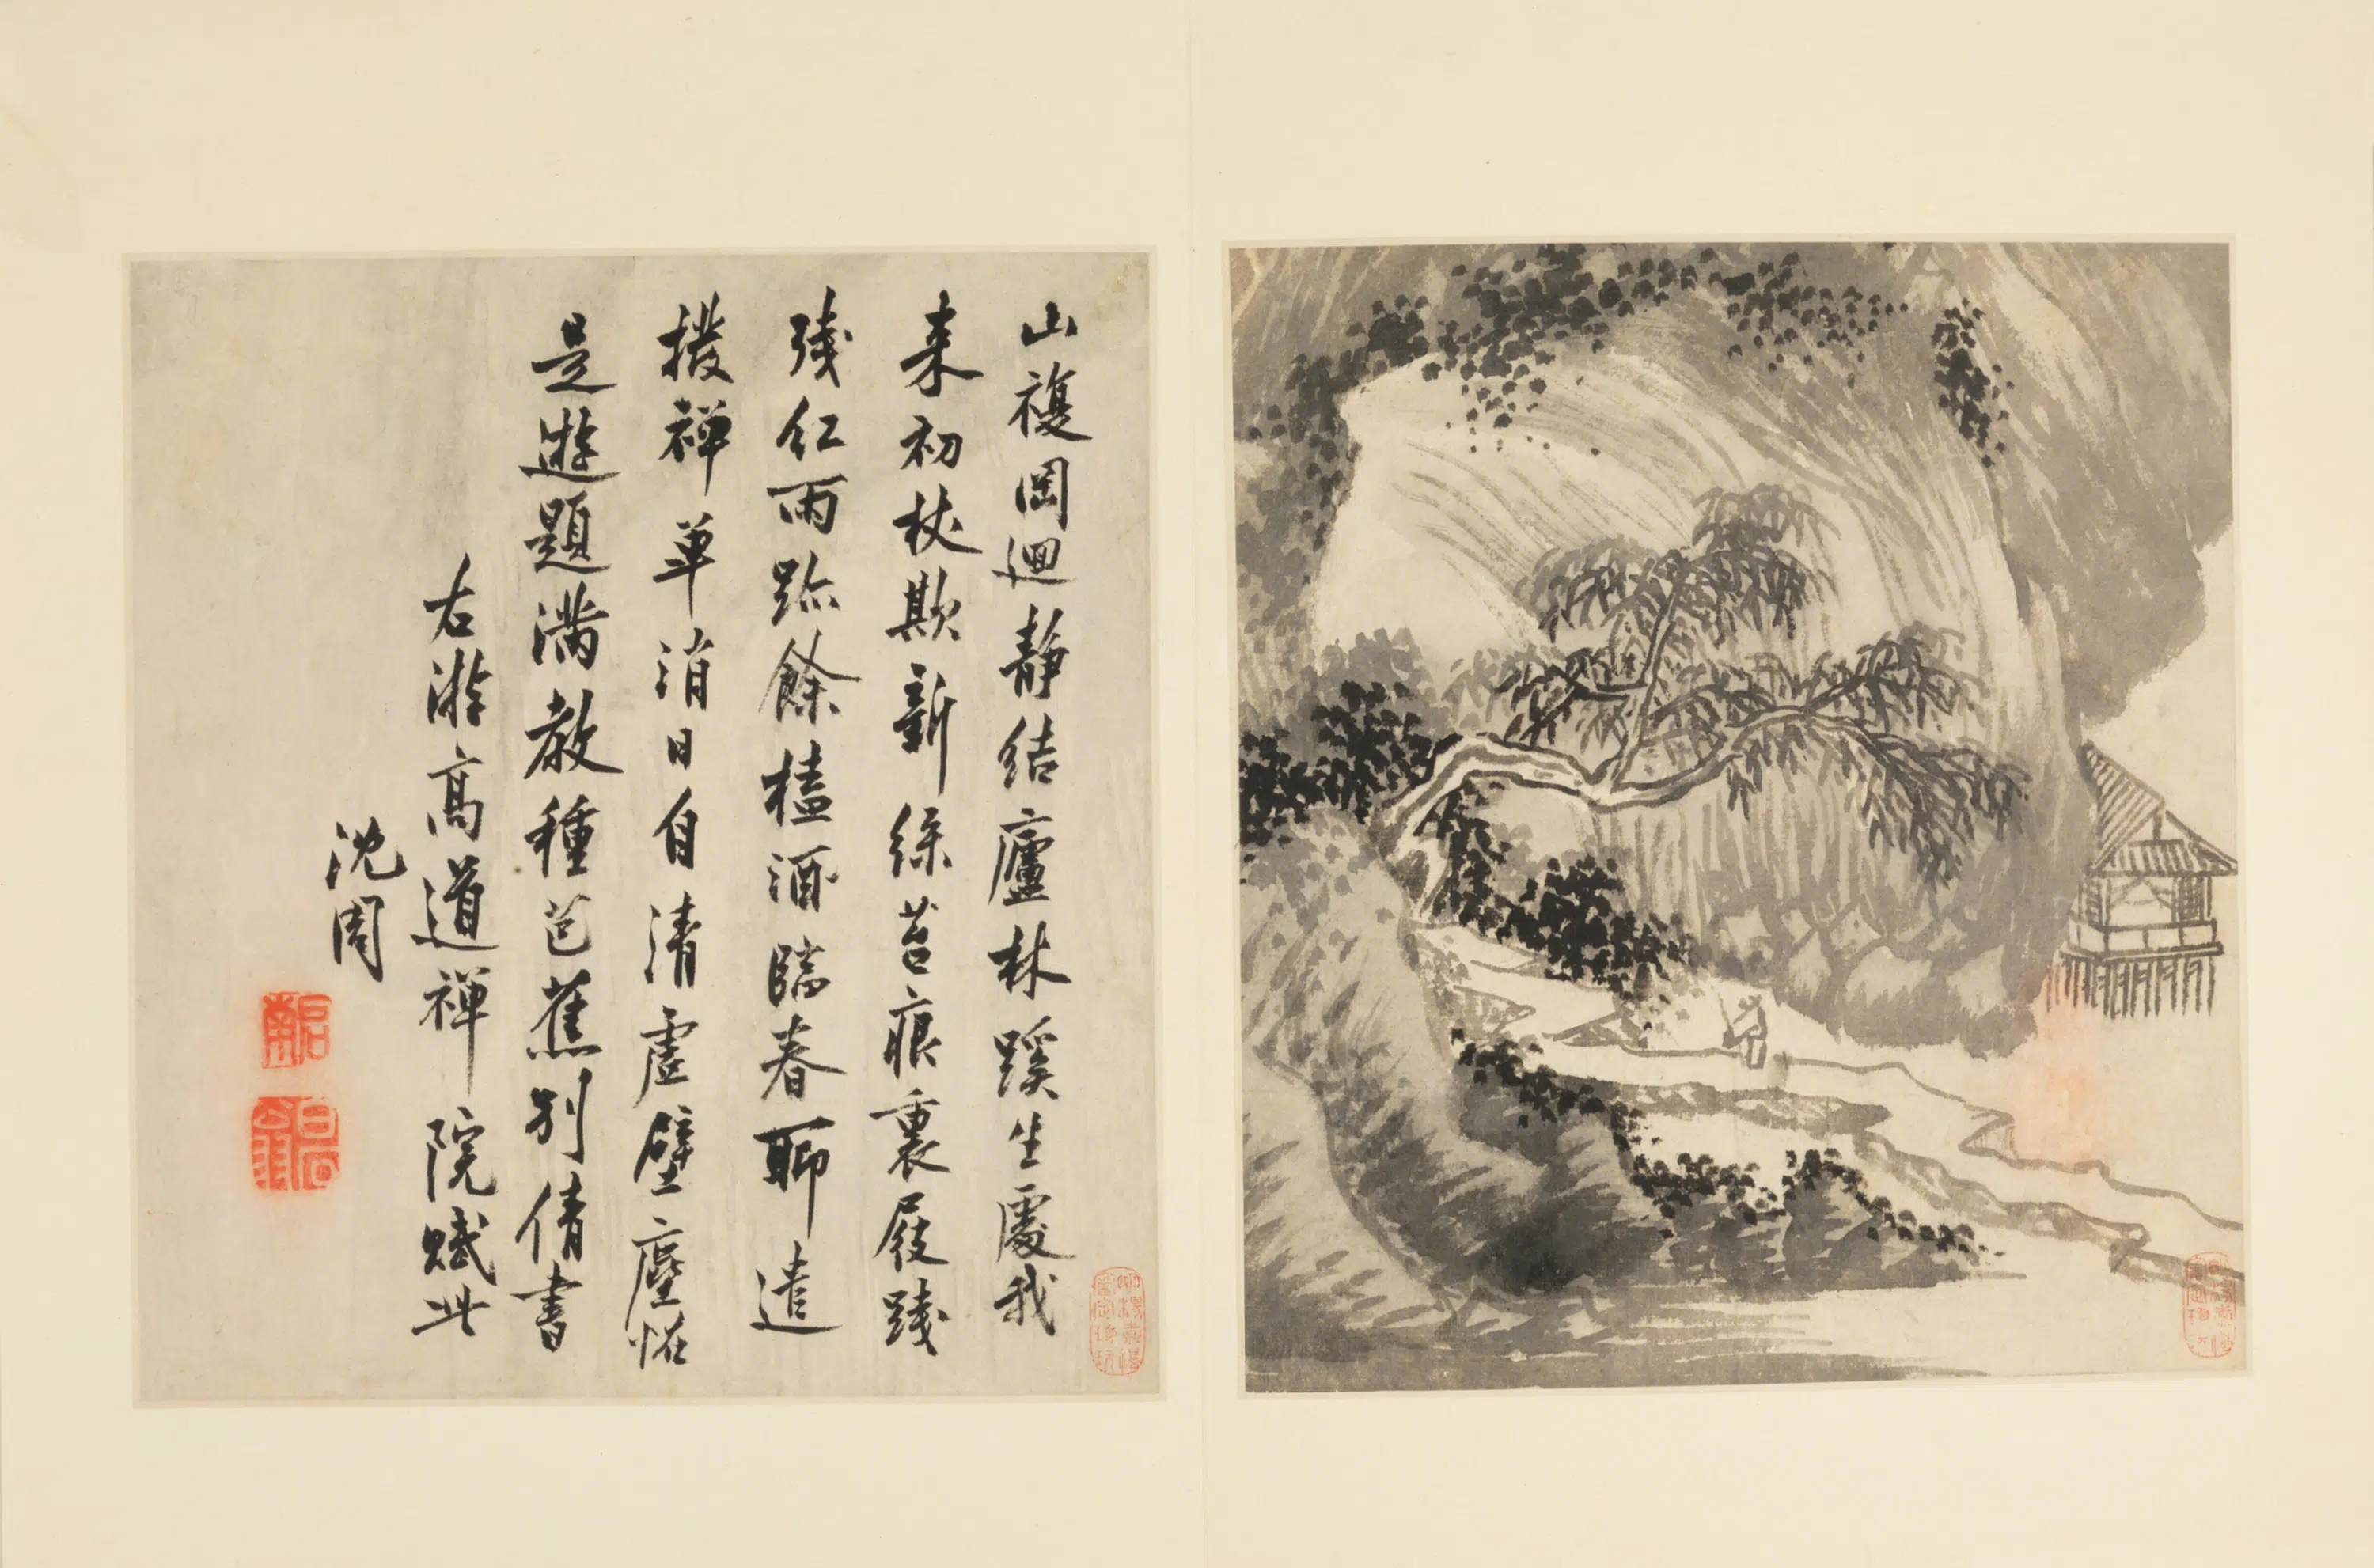 山複岡迴靜結廬林蹊生處我
来初杖欺新綠苔痕裏屐踐
殘紅雨跡餘榼酒臨春聊遣
撥禪單消日自清虛壁塵恠
是遊題滿教種芭蕉別倩書
右游高道禪院賦此
沈周
啟南
白石翁